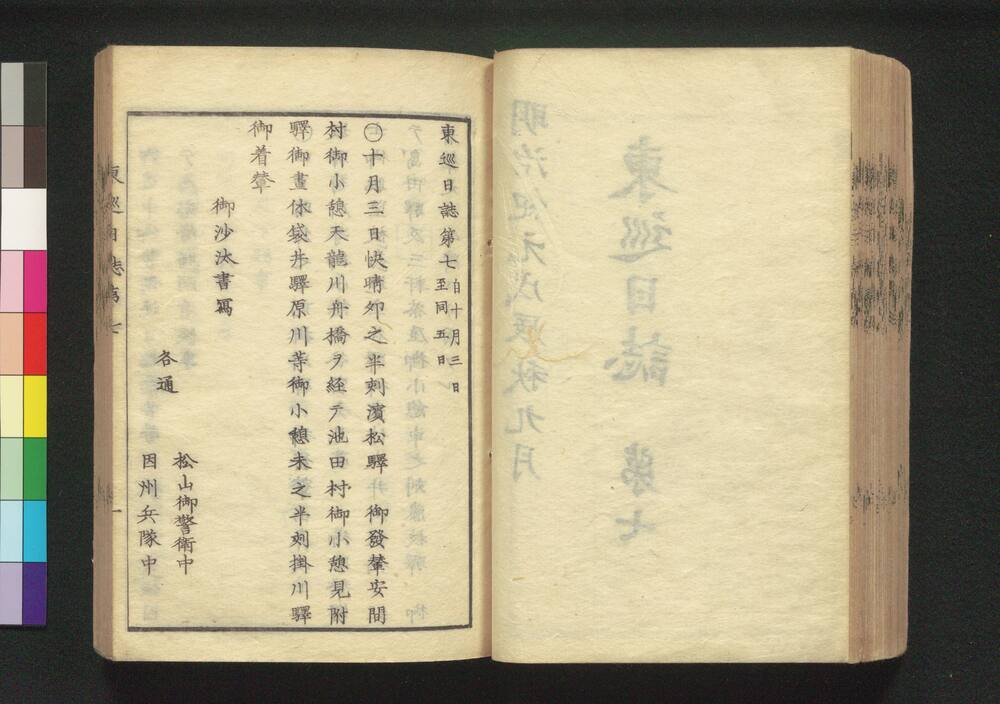 東巡日誌第七 自十月三日
至同五日
〇十月三日快晴卯之半刻濱松驛御發輦安間
村御小憩天龍川舟橋ヲ経テ池田村御小憩見附
驛御晝休袋井驛原川等御小憩未之半刻掛川驛
御着輦
御沙汰書寫
各通
松山御警衛中
因州兵隊中
東巡日誌第七
一
東巡日誌 第七
明治紀元戊辰秋九月